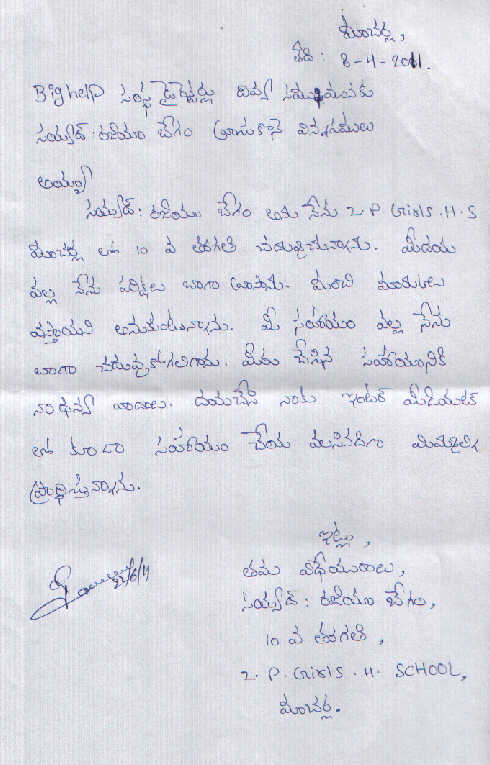 మాచర్ల,
తేది : 8-4-2011.
Bighelp సంస్థ డైరెక్టర్లు దివ్య సముఖమునకు
సయ్యద్ : రజియా బేగం వ్రాసుకొనే విన్నపములు
అయ్యా
సయ్యద్ : రజియా బేగం అను నేను Z. P Girls . H . S
మాచర్ల లో 10 వ తరగతి చదువుచున్నాను. మీదయ
వల్ల నేను పరీక్షలు బాగా వ్రాసాను. మంచి మార్కులు
వస్తాయని అనుకుంటున్నాను. మీ సహాయం వల్ల నేను
బాగా చదువుకోగలిగాను. మీరు చేసిన సహాయానికి
నా ధన్యవాదాలు. దయచేసి నాకు ఇంటర్ మీడియట్
లో కూడా సహాయం చేయ వలసినదిగా మిమ్మల్ని
ప్రార్థిస్తున్నాను.
ఇట్లు,
తమ విధేయురాలు,
సయ్యద్ : రజియా బేగం,
10 వ తరగతి,
Z. P. Girls . H. SCHOOL,
మాచర్ల.